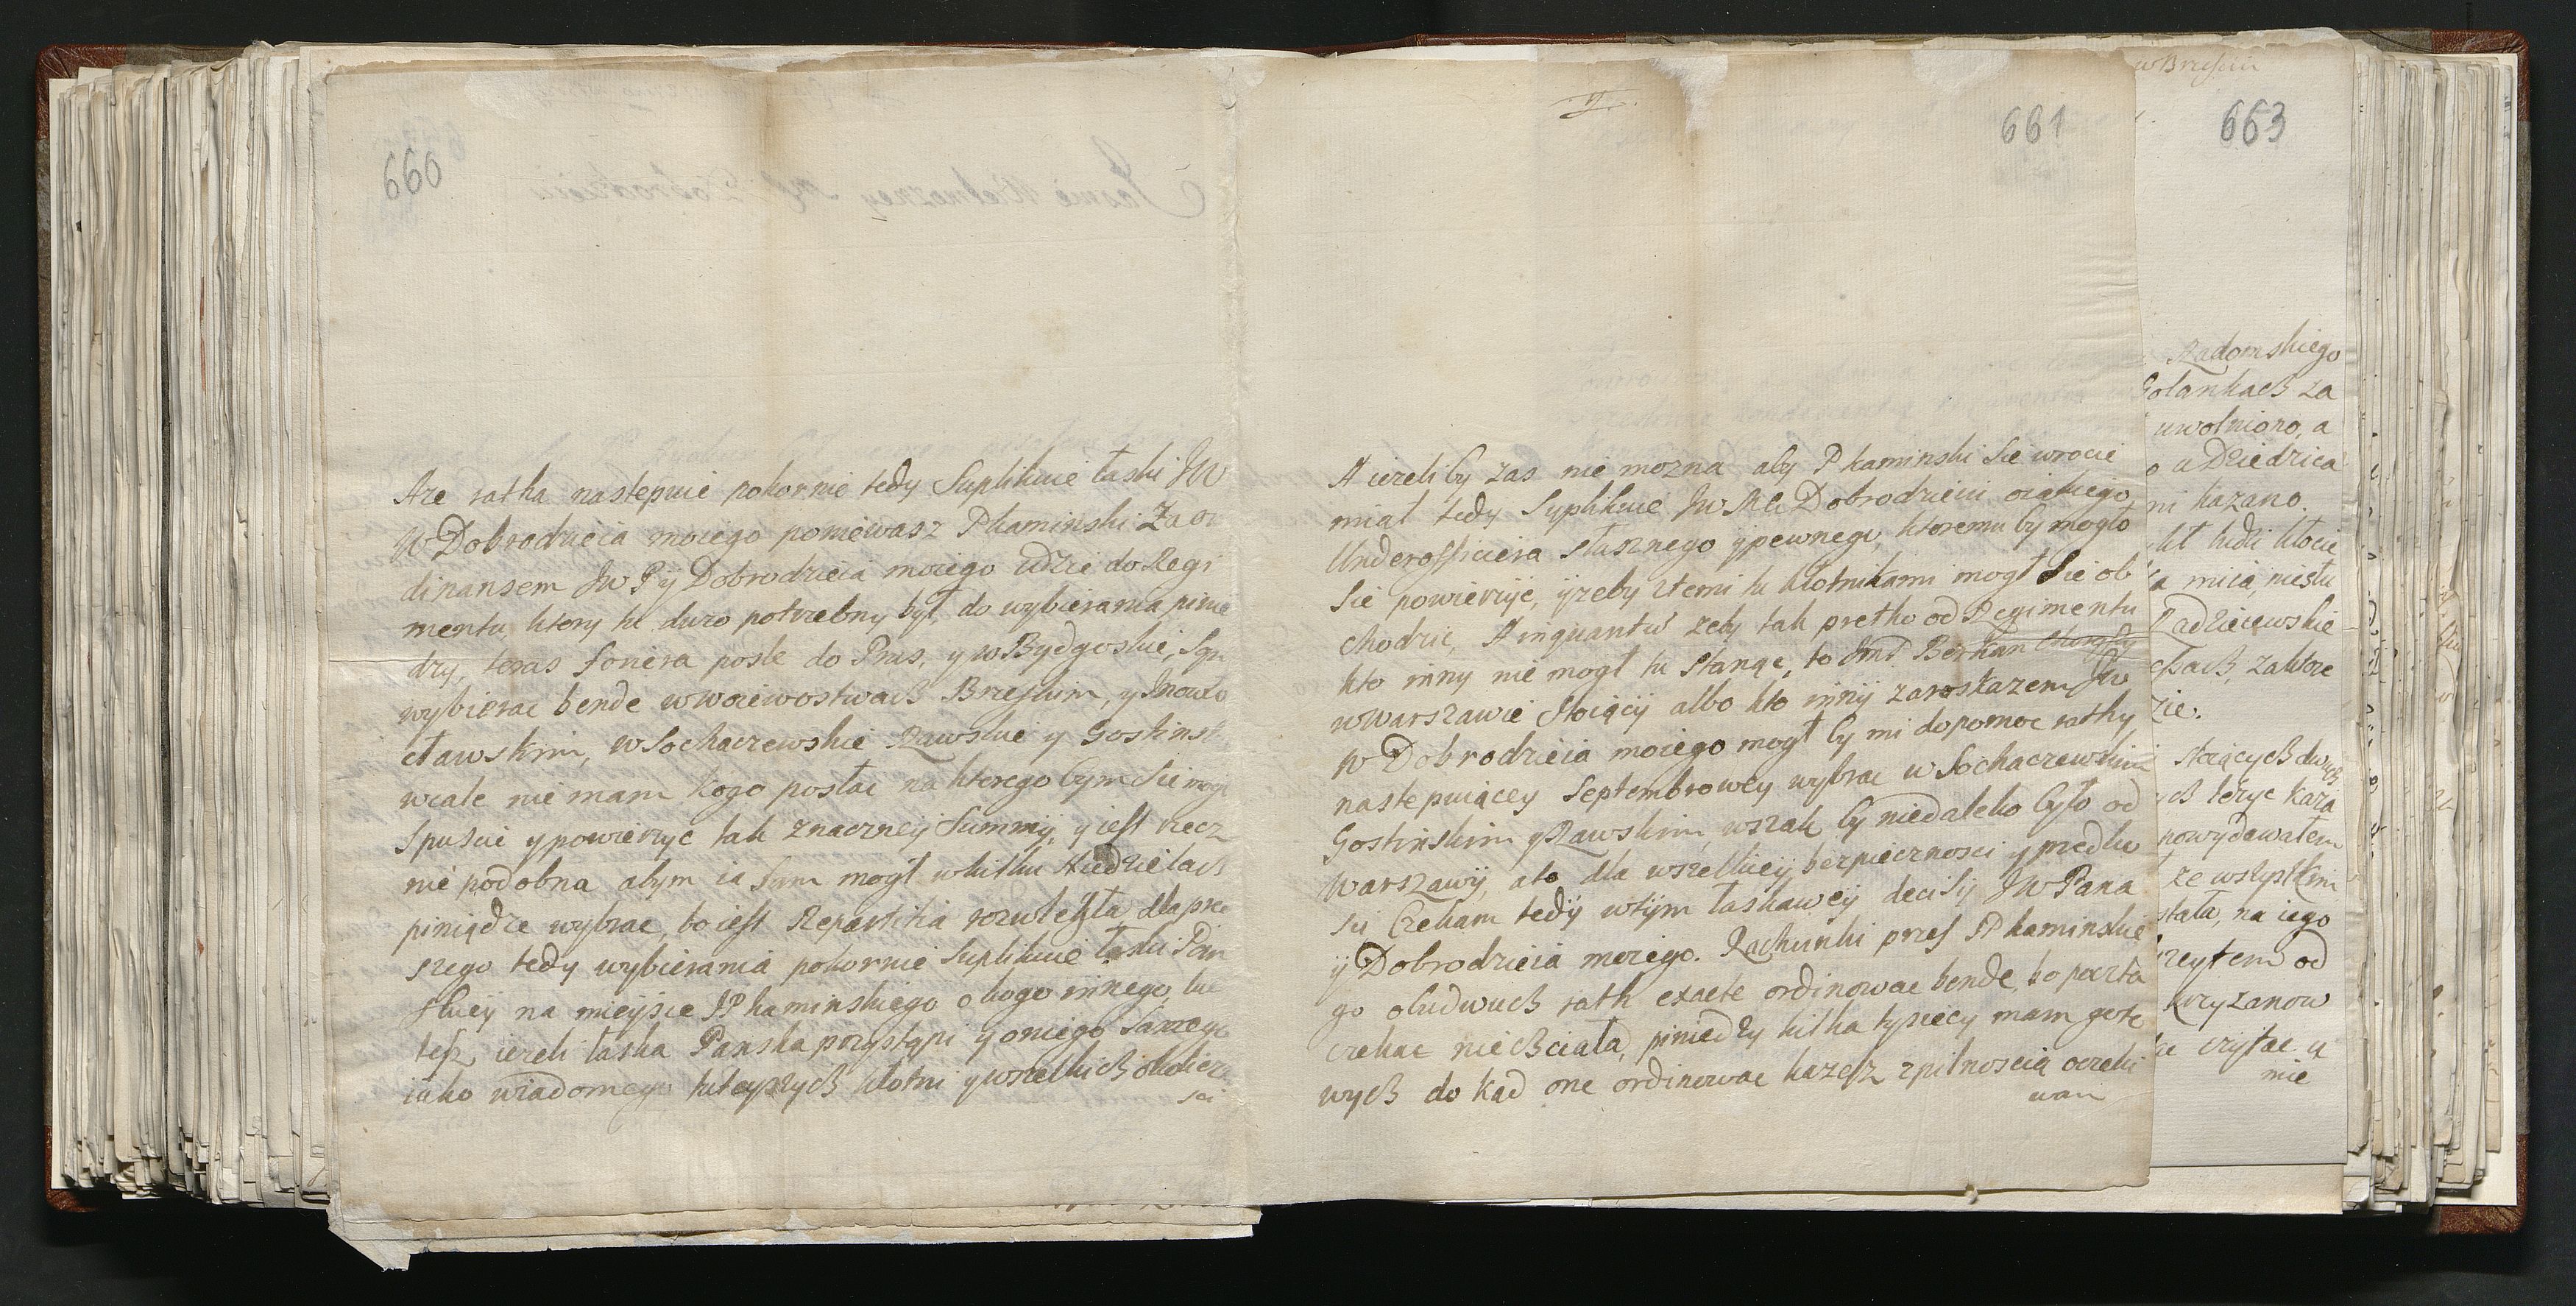 660
Aże ratha nastepuie pokornie tedy Suplikuie łaski JW
W Dobrodzieia moiego poniewasz P kaminski Za or
dinansem JW P ÿ Dobrodzieia moiego idzie do Regi
mentu, ktory tu duzo potrzebny był, do wybierania pinie
dzy, teras foniera posle do Prus, y w Bydgoskie, Sam
wybierac bende w woiewostwach Brzeskim, y Inowło
cławskim, w Sochaczewskie Rawskie y Gostinsk
wcale nie mam kogo posłac na ktorego bym sie mogł
Spuscic y powierzyc tak znaczneÿ Summÿ, y iest rzecz
nie podobna abym ia sam mogł w kilku Niedzielach
piniądze wybrac, bo iest Repartitia rozwlekła, dla prę
szego tedy wybierania pokornie Suplikuie łaski Pan
skieÿ na mieÿsce JP kaminskiego o kogo innego, lub
tesz iezeli łaska Panska przystąpi y oniego samego
iako wiadomego tuteyszych kłotni y wszelkich okolicz
sci
661
A iezeli by zas nie mozna aby P kaminski sie wrocic
miał tedy Suplikuie JW Mci Dobrodzieiu oiakiego
Underofficiera słusznego ÿ pewnego, ktoremu by mogło
sie powierzÿc, ÿ zeby stemi tu kłotnikami mogł sie ob
chodzic, A inquantu zeby tak pretko od Regimentu
kto inny nie mogł tu stanąc, to Jmć Berkan
w Warszawie stoiącÿ albo kto innÿ za roskazem JW
W Dobrodzieia moiego mogł by mi dopomoc rathy
nastepuiącey Septembrowey wybrac w Sochaczewskim
Gostinskim y Rawskim, wszak by niedaleko było od
Warszawÿ, ato dla wszelkieÿ bezpiecznosci y predko
sci Czekam tedÿ wtÿm łaskaweÿ decisÿ JW Pana
ÿ Dobrodzieia moiego. Rachunki przes JP kaminskie
go obudwuch rath exacte ordinowac bende, bo poczta
czekac nie chciała, piniedzy kilka tysiecy mam goto
wych do kąd one ordinowac kazesz spilnoscią oczeki
wam
w Brzesciu
663
Radomskiego
Golankach za
uwolniono, a
o u Dziedzica
ni kazano.
ludzi kłocic
a mieia, niestu
Radzieiewskie
za ktore
zie.
stoiących dwuch
ch lezyc każa
powydawałem
ze wszystkim
stała, na iego
od
krzyzanow
czytac y
mie